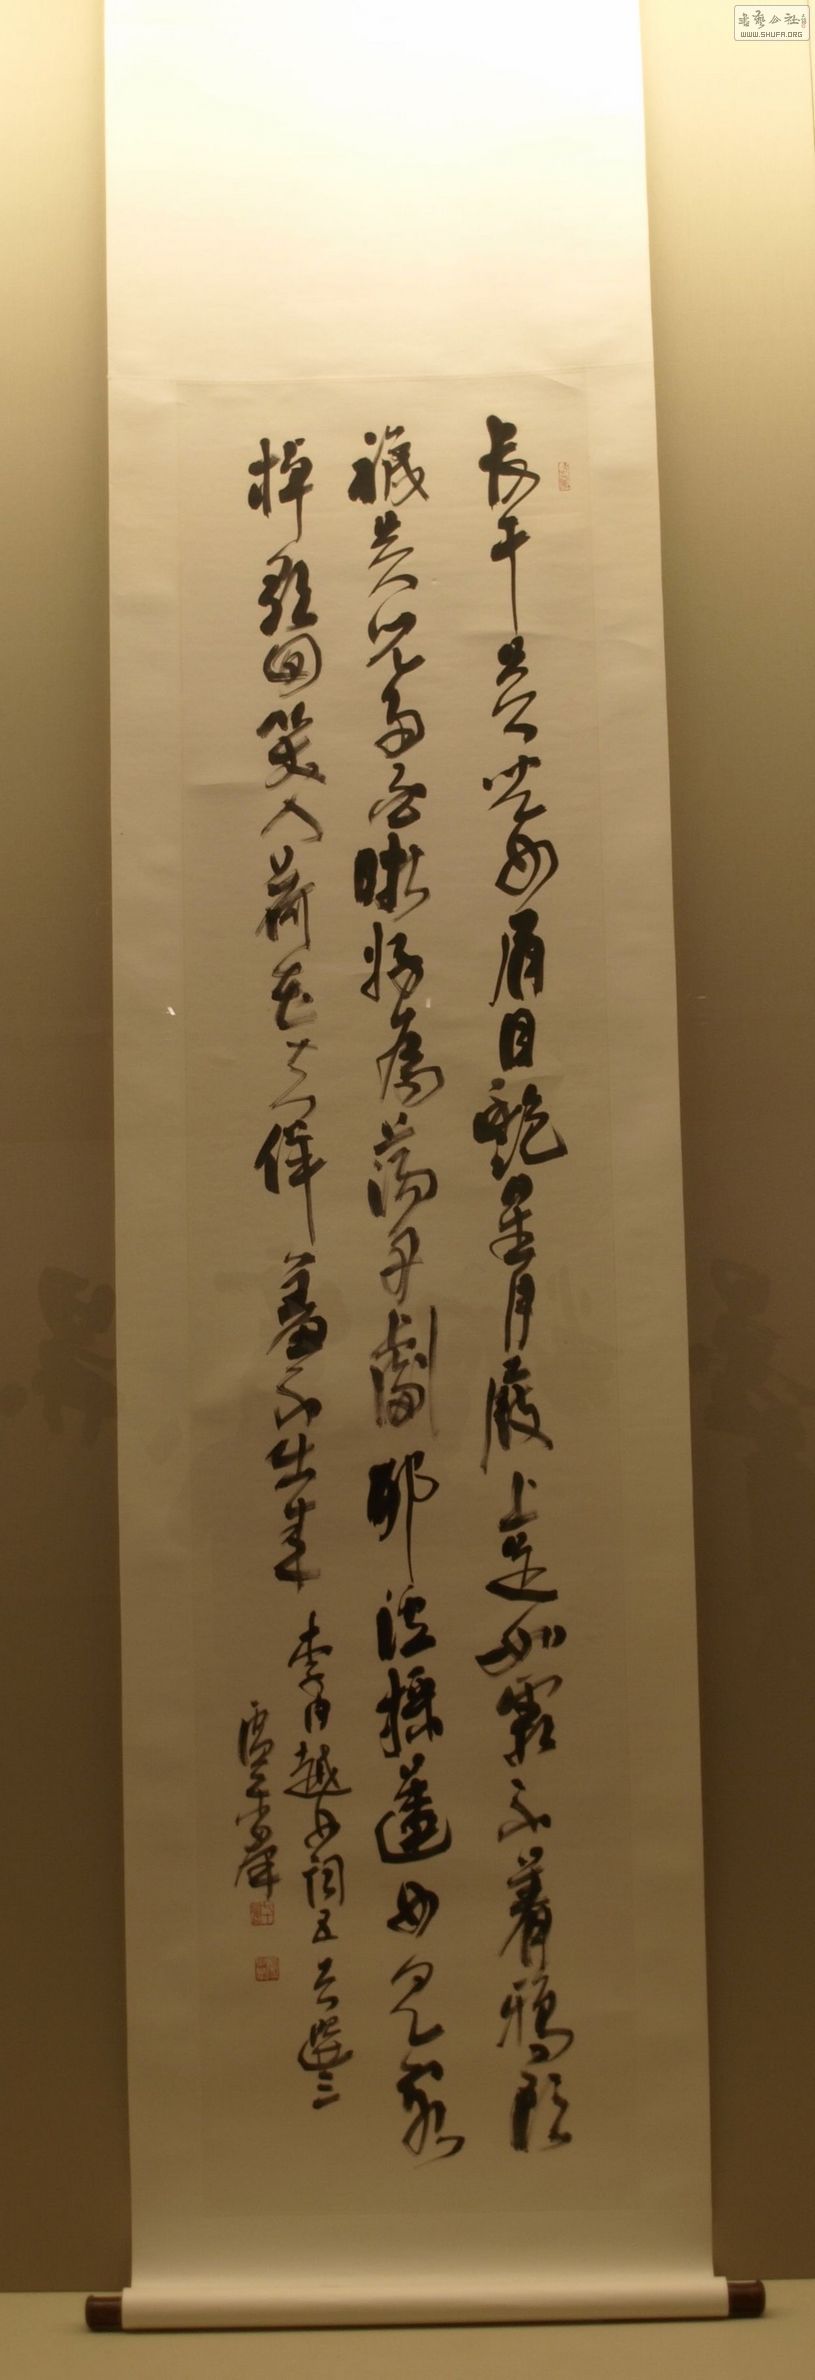 書藝公社
WWW.SHUFA.ORG
長干吳兒女眉目艷星月屐上足如霜不着鴉頭
襪吳兒多白晰好為蕩舟劇耶溪採蓮女見客
棹歌回笑入荷花去佯羞不出來
李白越女詞五首選三